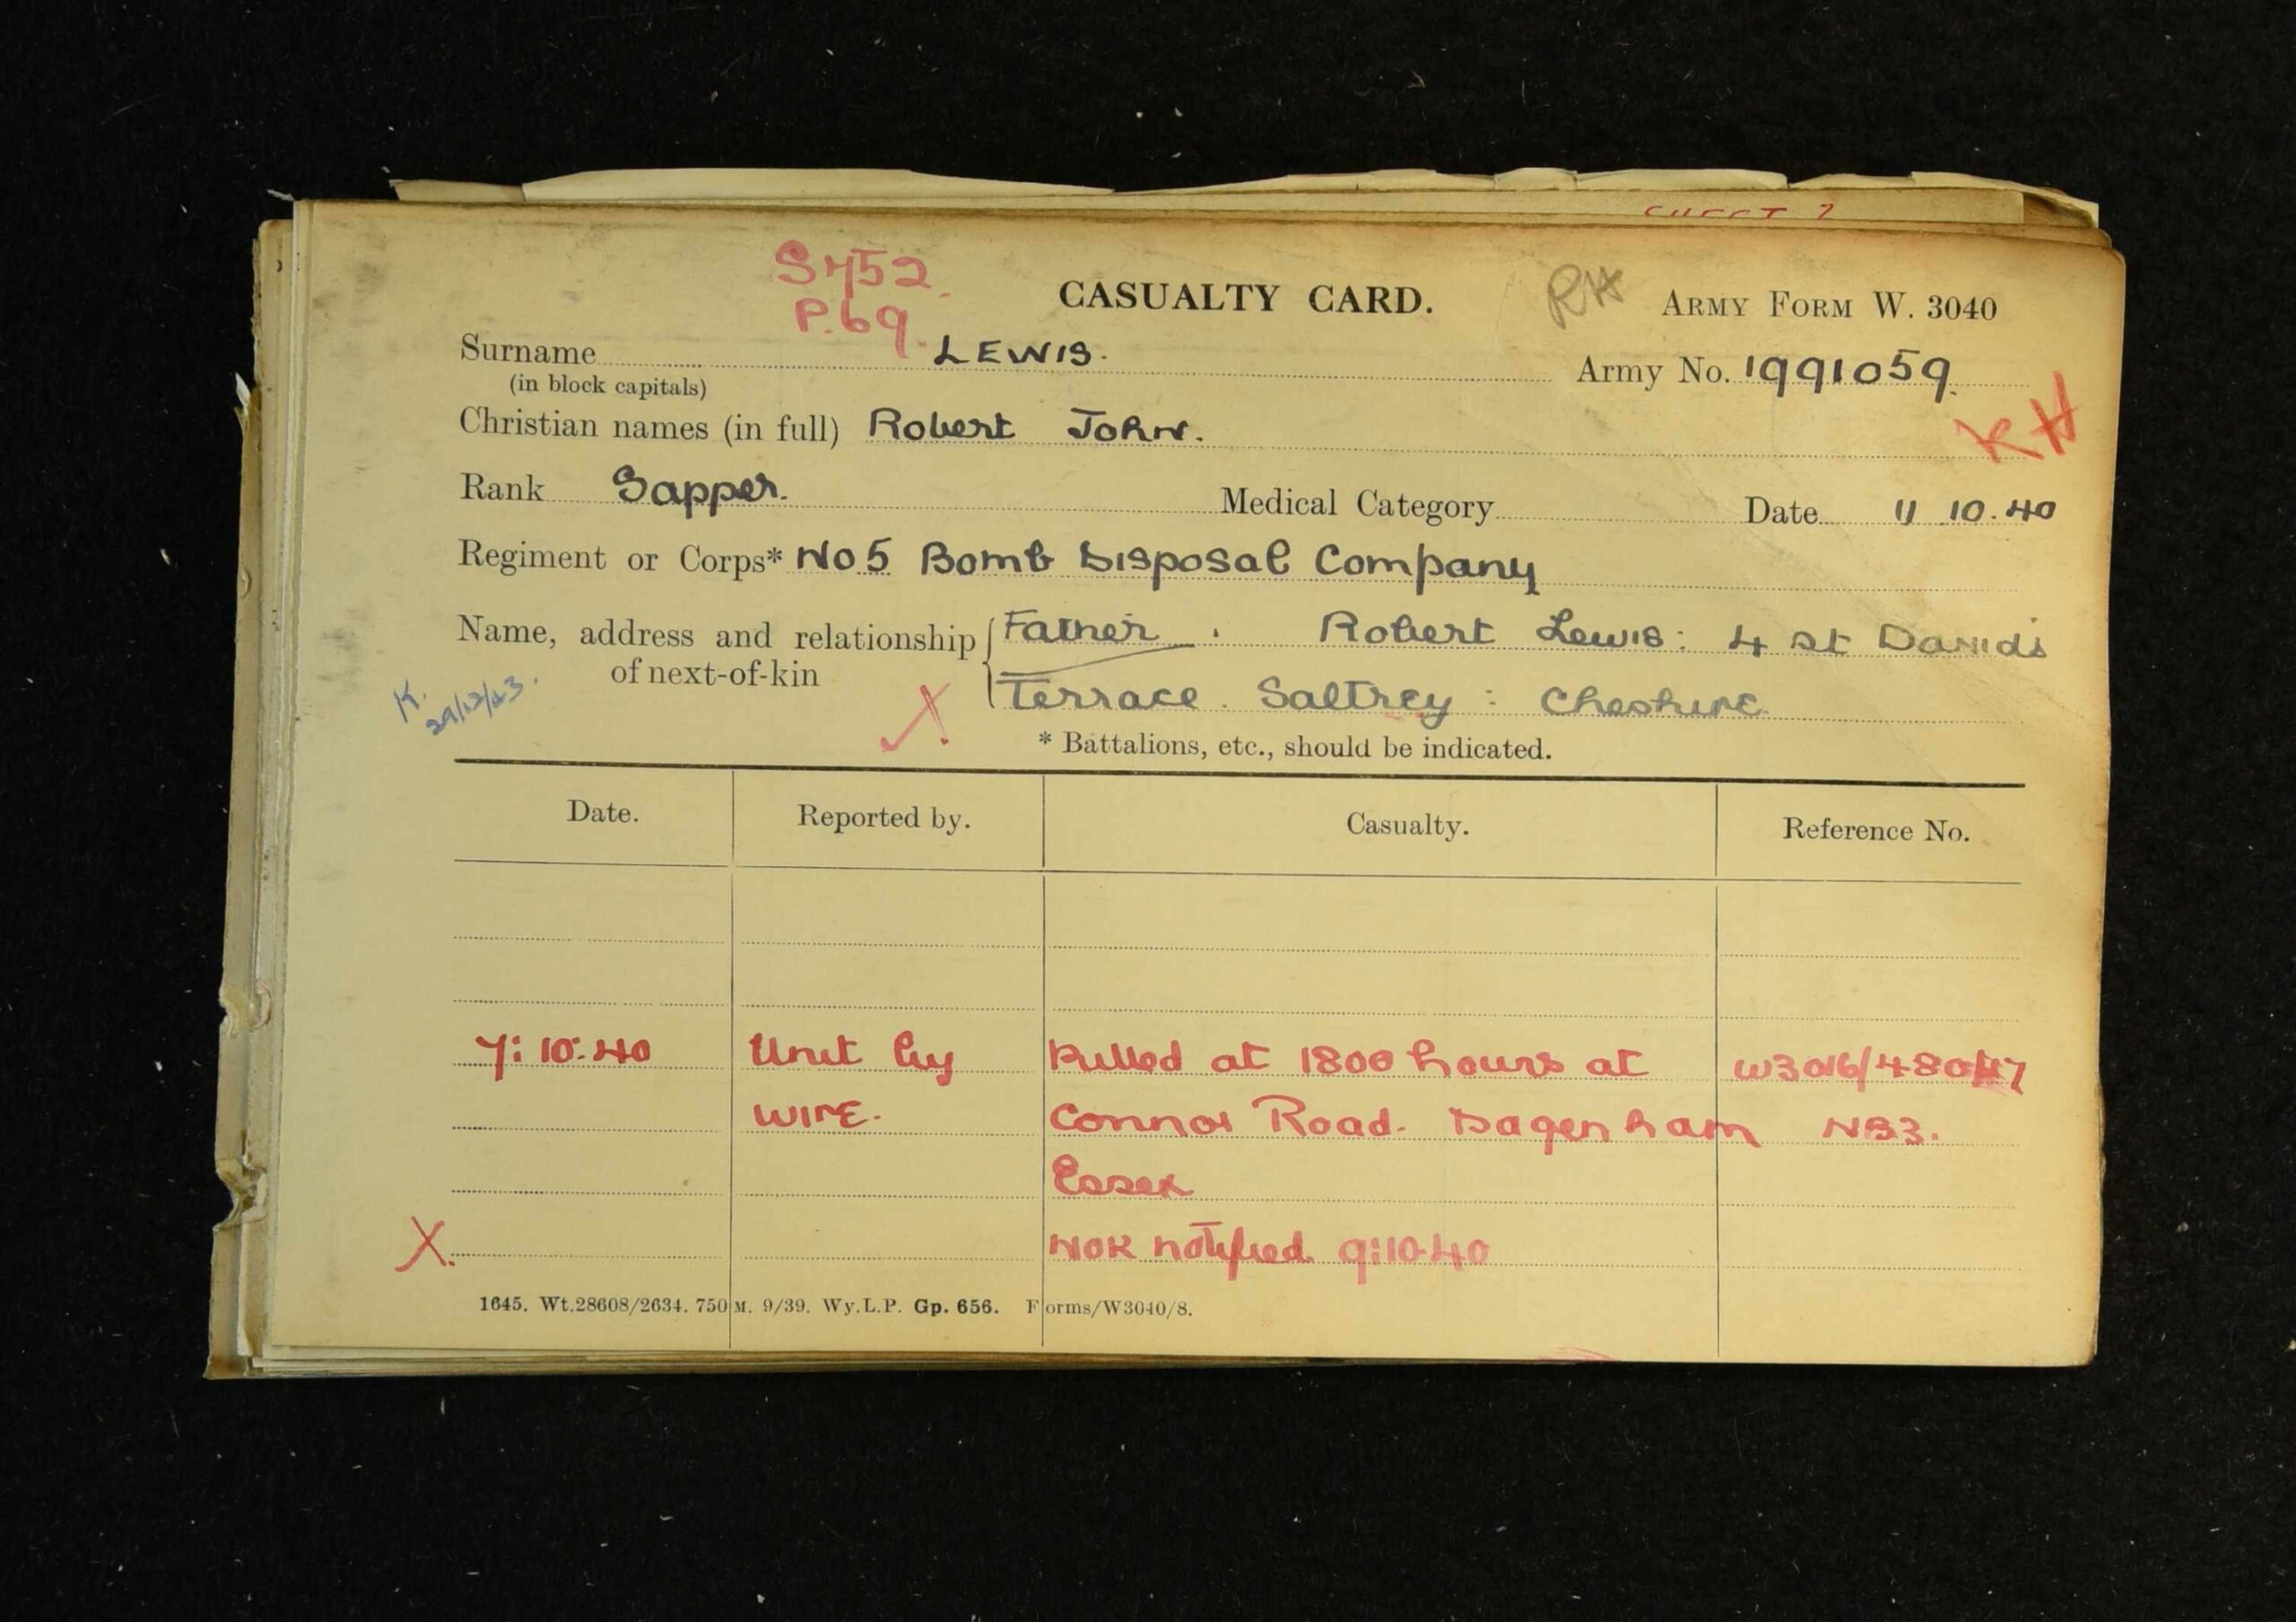 S752.
P.69.
CASUALTY CARD.
RH
ARMY FORM W. 3040
Surname LEWIS.
(in block capitals)
Army No. 1991059.
KH
Christian names (in full) Robert John.
Rank Sapper.
Medical Category
Date 11 10.40
Regiment or Corps* No 5 Bomb Disposal Company
Name, address and relationship of next-of-kin
Father. Robert Lewis: 4 St David's
Terrace. Saltney: Cheshire
X
* Battalions, etc., should be indicated.
Date. Reported by. Casualty. Reference No.
7:10:40 Unit by Killed at 1800 hours at
WIRE. Connor Road. Dagenham NB3.
Essex
X. NOK notified. 9:10.40
1645. Wt.28608/2634. 750 M. 9/39. Wy.L.P. Gp. 656. Forms/W3040/8.